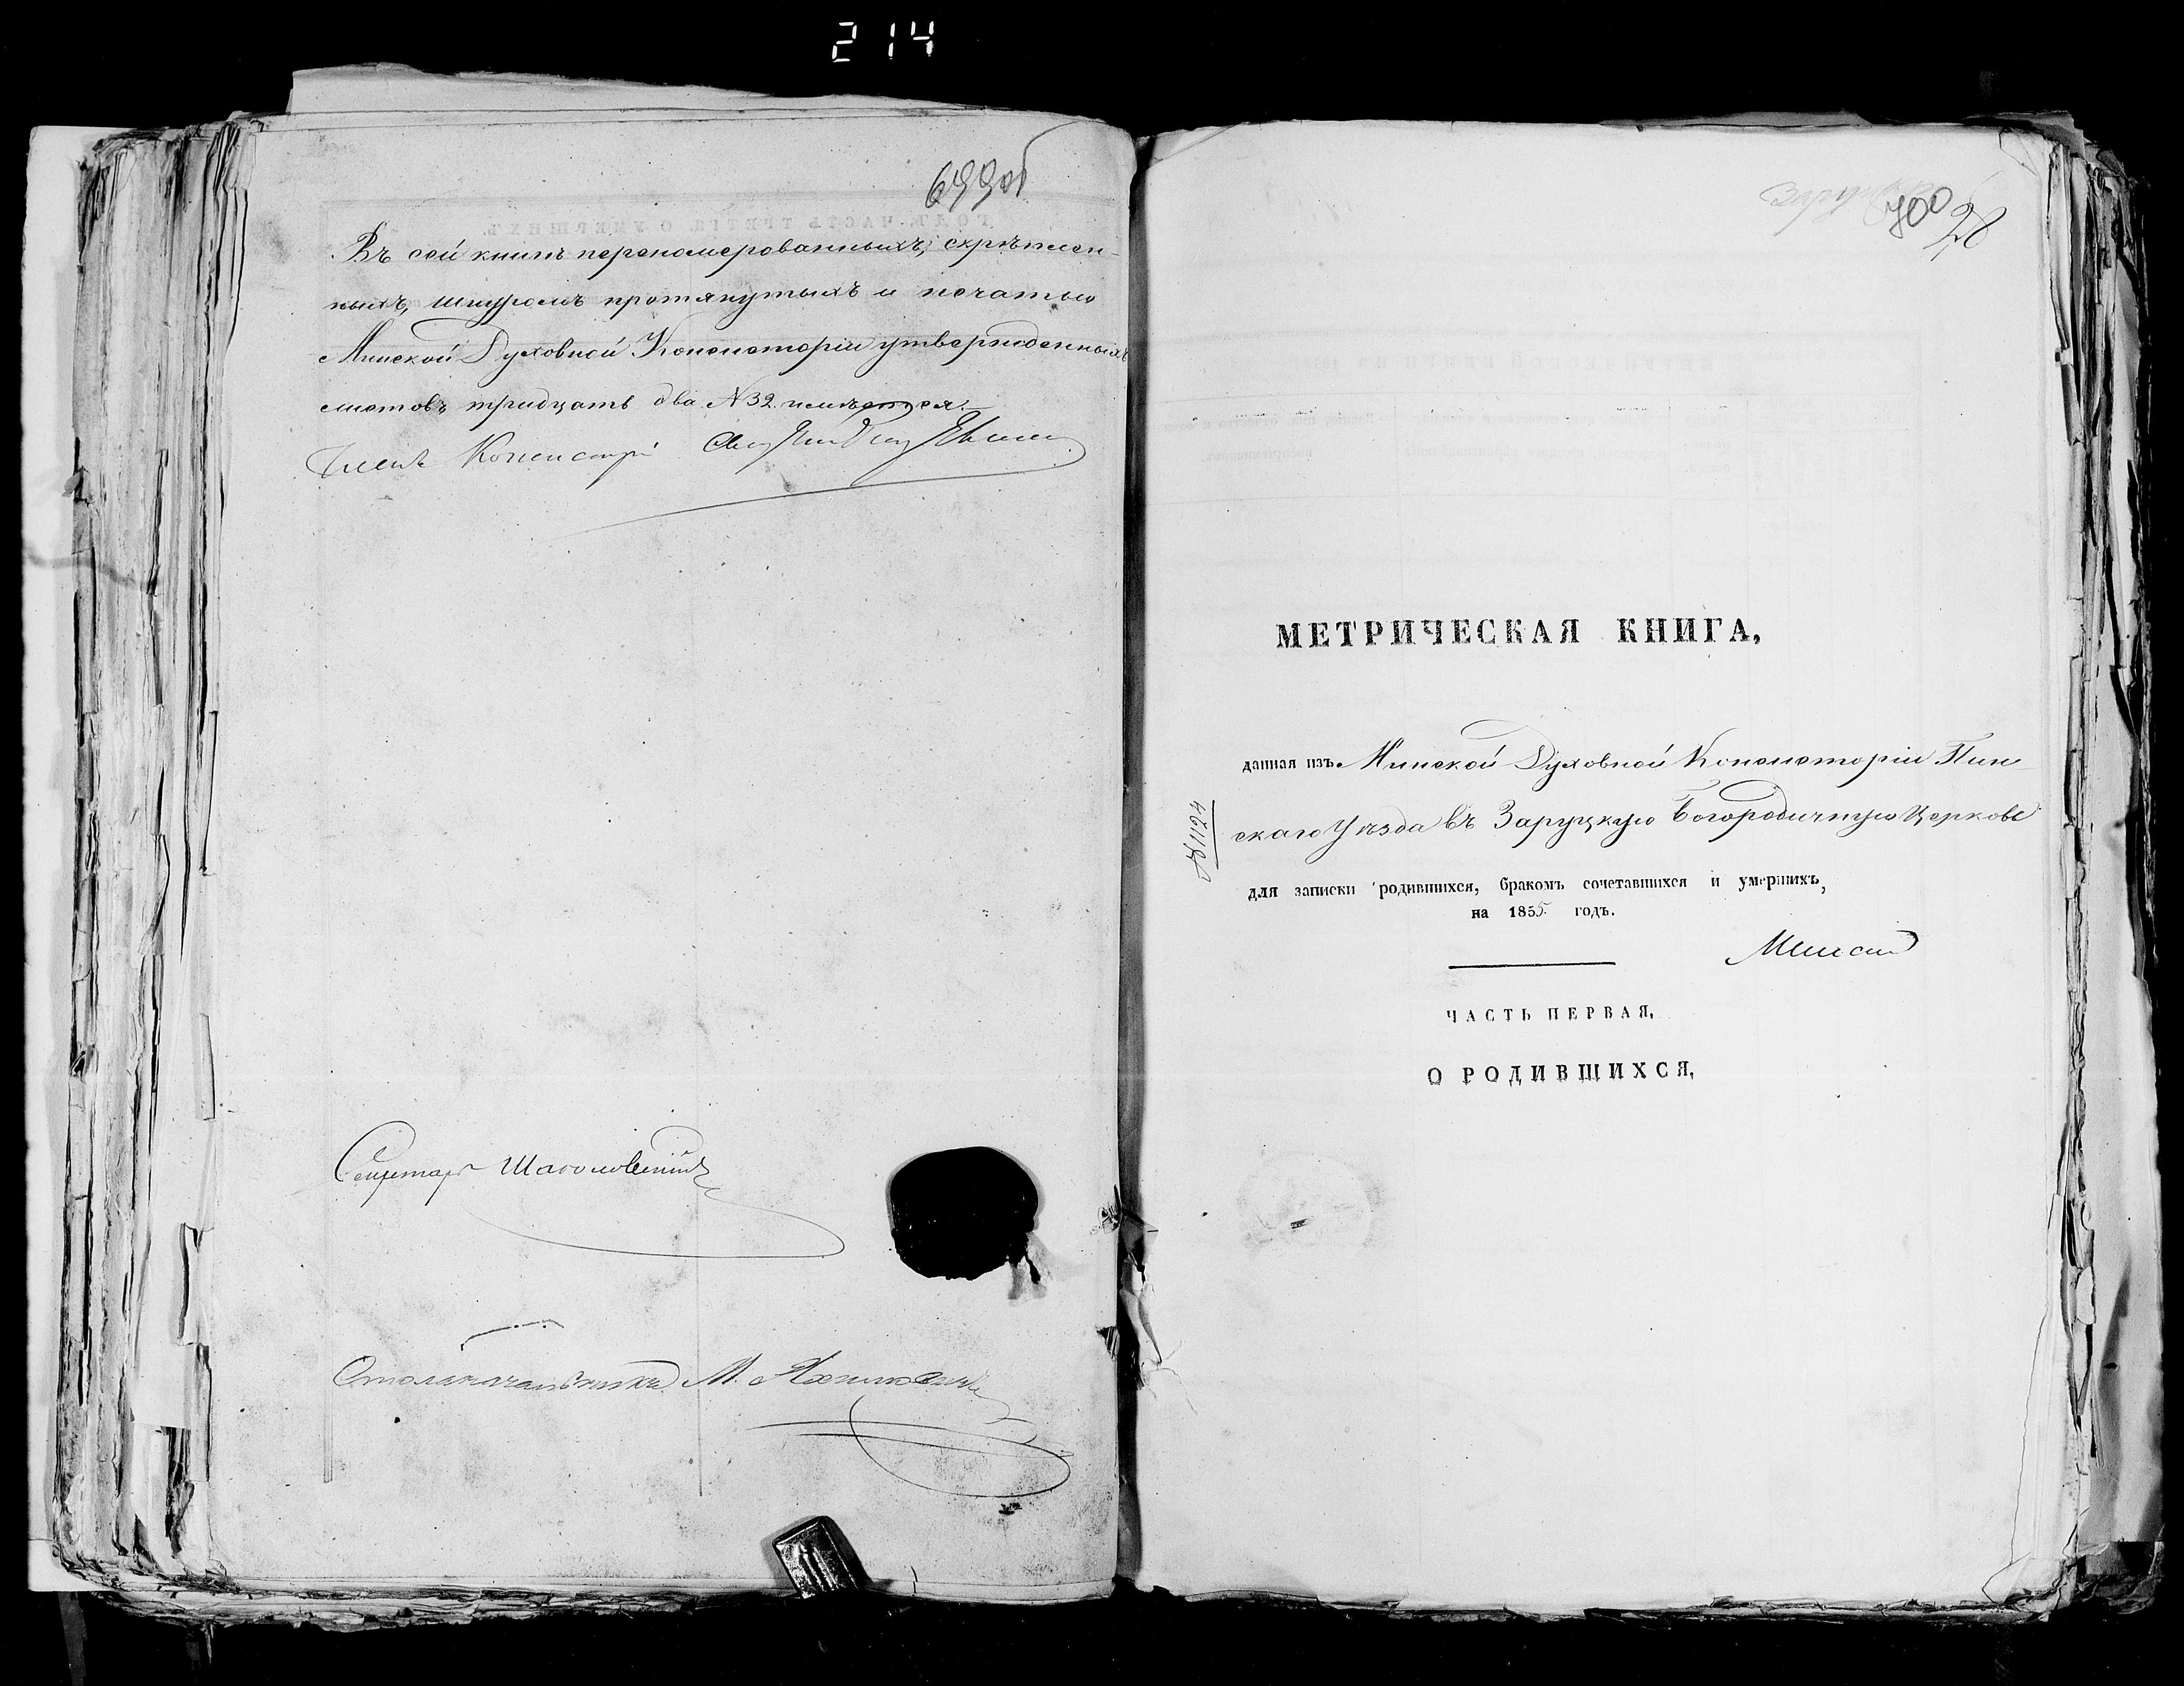 214
699об
Въ сей книгѣ перепомерованныхъ, скрѣплен-
ныхъ, шнуромъ протянутыхъ и печатью
Минской Духовной Консисторіи утвержденныхъ
листовъ тридцать два N 32 имѣется.
Членъ Консисторіи
Секретарь
Столоначальникъ М.
700
28
МЕТРИЧЕСКАЯ КНИГА,
данная изъ Минской Духовной Консисторіи Пин-
скаго Уѣзда въ Заруцкую Богородичную Церковь
№ 1124
для записки родившихся, бракомъ сочетавшихся и умершихъ,
на 1855 годъ.
ЧАСТЬ ПЕРВАЯ,
О РОДИВШИХСЯ,